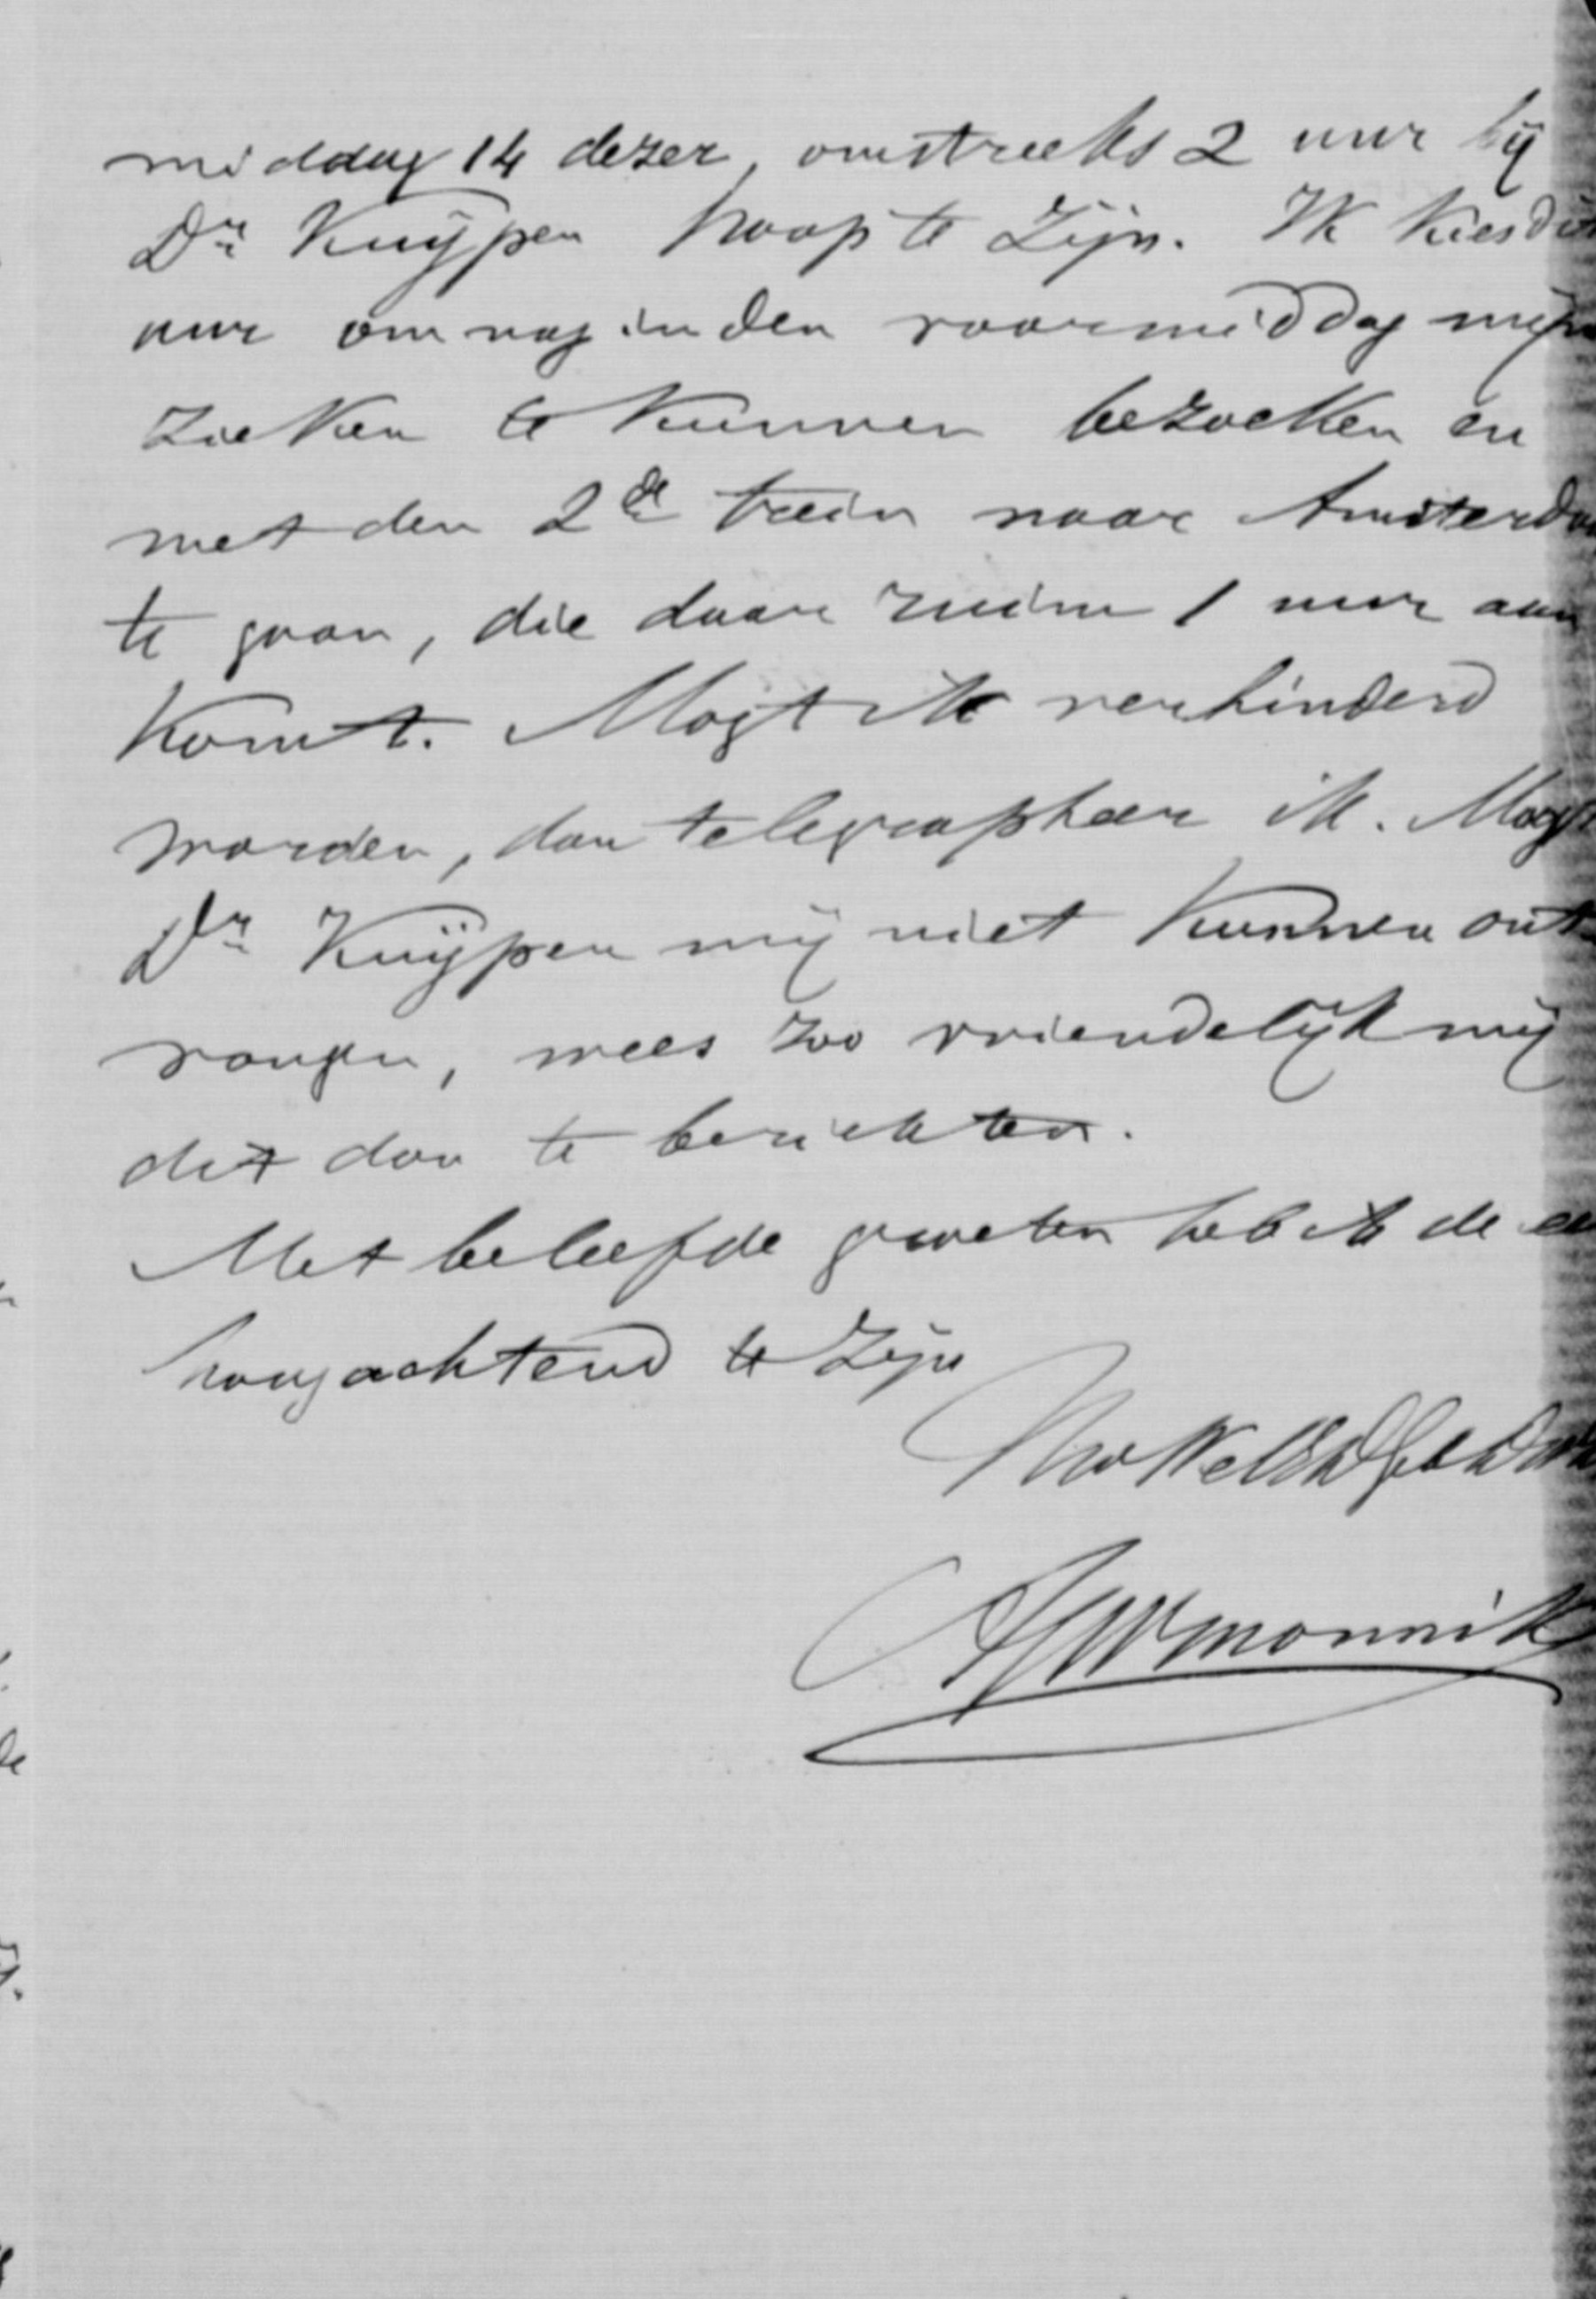 middag 14 dezer, omstreeks 2 uur bij
Dr. Kuijper hoop te zijn. Ik kies dit
uur om nog in den voormiddag mijn
zieken te kunnen bezoeken en
met den 2de trein naar Amsterdam
te gaan, die daar ruim 1 uur aan
komt. Mogt ik verhinderd
worden, dan telegrapheer ik. Mogt
Dr. Kuijper mij niet kunnen ont-
vangen, wees zoo vriendelijk mij
dit dan te berichten.
Met beleefde groeten heb ik de eer
hoogachtend te zijn